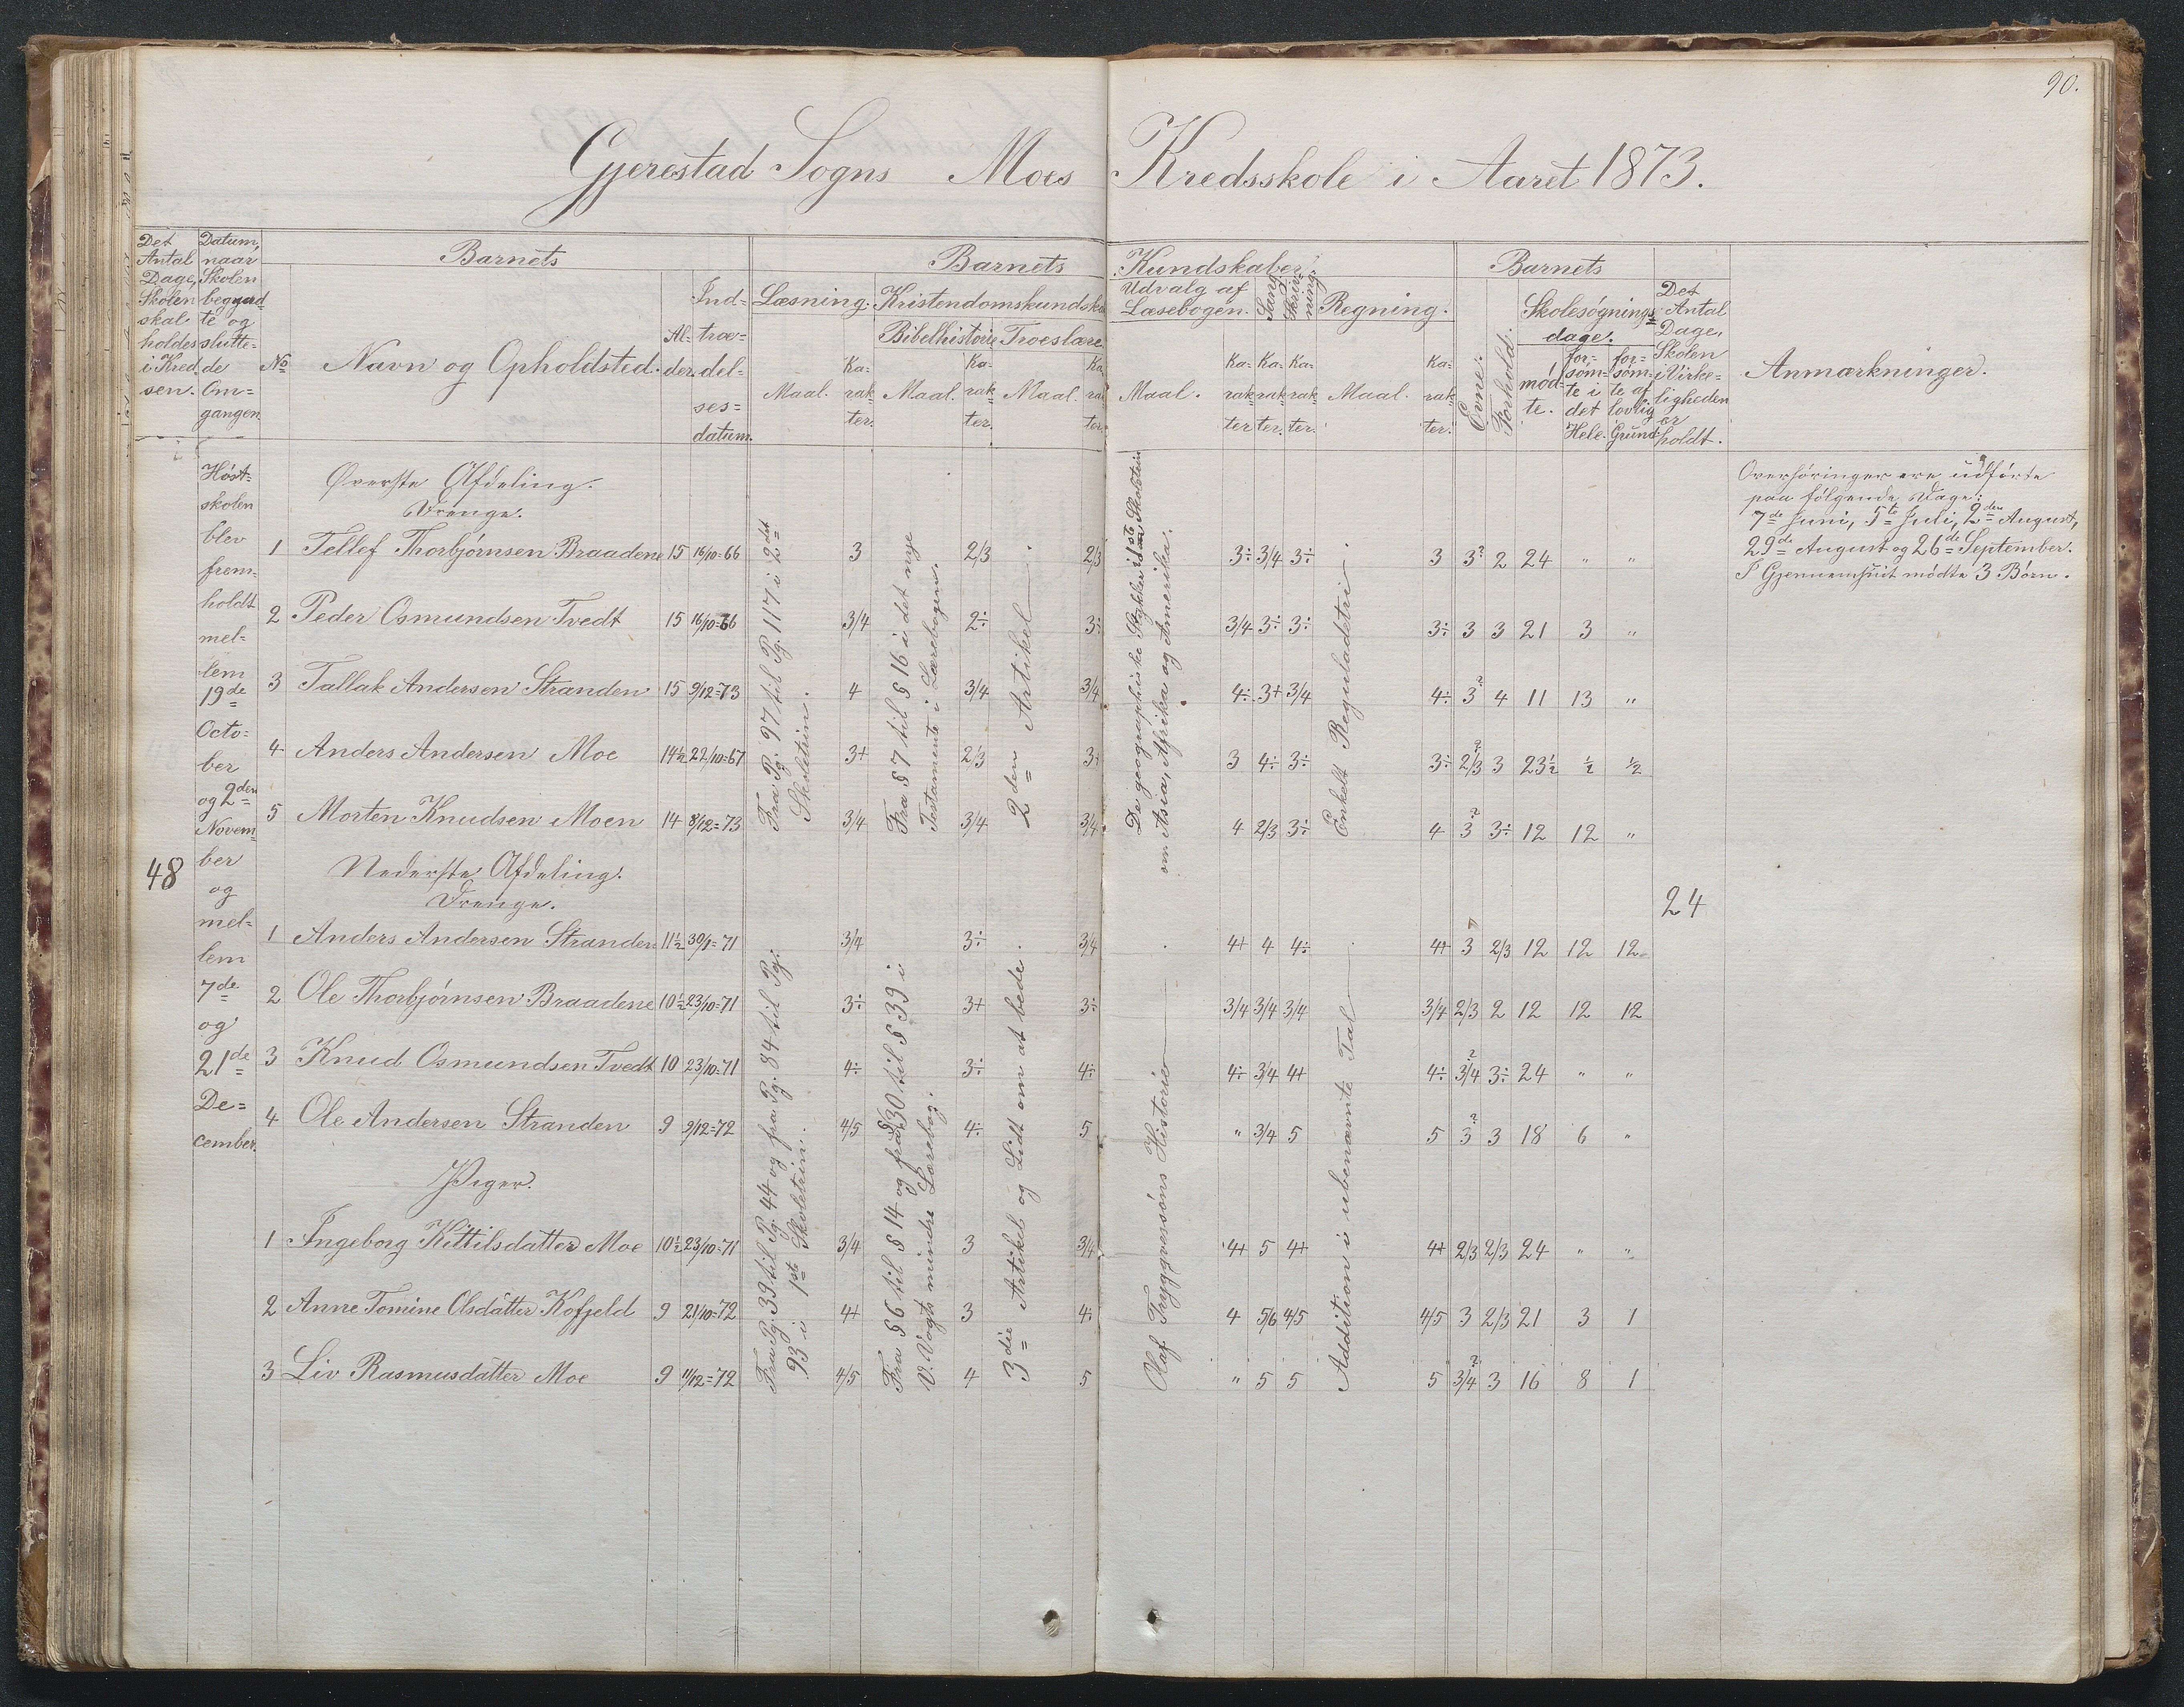 90.
Gjerestad Sogns Moes Kredsskole i Aaret 1873.
Det Antal Dage, Skolen skal holdes i Kredsen.
Datum, naar Skolen begyndte og sluttede Omgangen.
Barnets
No
Navn og Opholdsted.
Alder.
Indtrædelsesdatum.
Barnets Kundskaber.
Læsning.
Maal.
Karakter.
Kristendomskundsk
Bibelhistorie
Maal.
Karakter.
Troeslære
Maal.
Karakter.
Udvalg af Læsebogen.
Maal.
Karakter
Sang.
Karakter.
Skrivning.
Karakter.
Regning.
Maal.
Karakter.
Barnets
Evne.
Forhold.
Skolesøgningsdage.
mødte.
forsømte i det Hele.
forsømte af lovlig Grund.
Det Antal Dage, Skolen i Virkeligheden er holdt.
Anmærkninger.
48
Høstskolen blev fremholdt mellem 19de October og 2den November og mellem 7de og 21de December.
Øverste Afdeling.
Drenge.
1 Tellef Thorbjørnsen Braadene 15 16/10=66 3 2/3 2/3 3÷ 3/4 3÷ 3 3? 2 24 " "
2 Peder Osmundsen Tvedt 15 16/10=66 3/4 2÷ 3÷ 3/4 3÷ 3÷ 3÷ 3 3 21 3 "
3 Tallak Andersen Stranden 15 9/12=73 4 3/4 3/4 4÷ 3+ 3/4 4÷ 3? 4 11 13 "
4 Anders Andersen Moe 14½ 22/10=67 3+ 2/3 3+ 3 4÷ 3÷ 3÷ 2/3? 3 23½ ½ ½
5 Morten Knudsen Moen 14 8/12=73 3/4 3/4 3/4 4 2/3 3÷ 4 3? 3÷ 12 12 "
Fra Pg. 97 til Pg. 117 i 2det Skoletrin.
Fra § 7 til § 16 i det nye Testamente i Lærebogen.
2den Artikel
De geographiske Stykker i 1ste Skoletrin om Asia, Afrika og Amerika.
Enkelt Reguladetri
Nederste Afdeling.
Drenge.
1 Anders Andersen Stranden 11½ 30/1=71 3/4 3÷ 3/4 4+ 4 4÷ 4+ 3? 2/3 12 12 12
2 Ole Thorbjørnsen Braadene 10½ 23/10=71 3÷ 3+ 3÷ 3/4 3/4 3/4 3/4 2/3 2 12 12 12
3 Knud Osmundsen Tvedt 10 23/10=71 4÷ 3÷ 4÷ 4÷ 3/4 4+ 4÷ 3/4? 3÷ 24 " "
4 Ole Andersen Stranden 9 9/12=72 4/5 4÷ 5 " 3/4 5 5 3? 3 18 6 "
Piger.
1 Ingeborg Kittilsdatter Moe 10½ 23/10=71 3/4 3 3/4 4+ 5 4+ 4+ 2/3 2/3 24 " "
2 Anne Tomine Olsdatter Kofjeld 9 21/10=72 4+ 3 4÷ 4 5/6 4/5 4/5 3 2/3 21 3 1
3 Liv Rasmusdatter Moe 9 11/12=72 4/5 4 5 " 5 5 5 3/4? 3 16 8 1
Fra Pg. 39 til Pg. 44 og fra Pg. 84 til Pg. 93 i 1ste Skoletrin.
Fra § 6 til § 14 og fra § 30 til § 39 i V. Vogts mindre Lærebog.
3die Artikel og Lidt om at bede.
Olaf Tryggvessøns Historie
Addition i ubenævnte Tal
24
Overhøringer ere udførte
paa følgende Dage:
7de Juni, 5te Juli, 2den August,
29de August og 26de September.
I Gjennemsnit mødte 3 Børn.